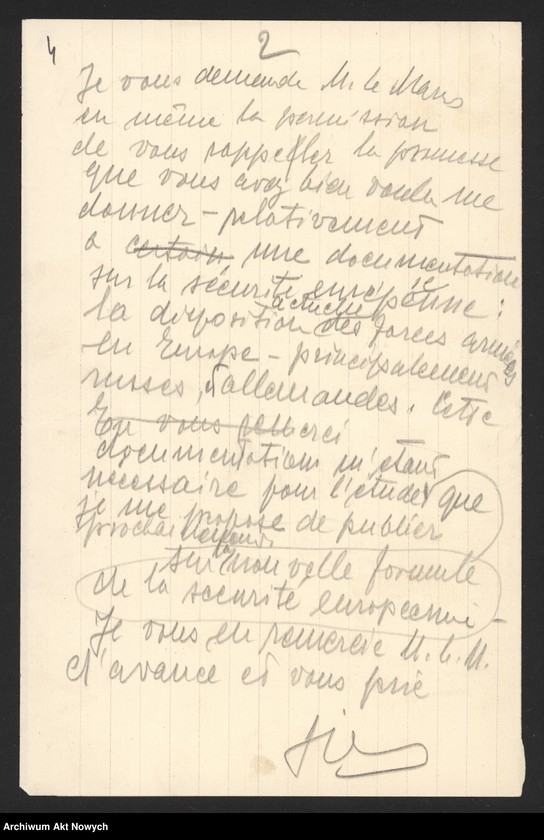 4
2
Je vous demande M. le Mar
en même la permission
de vous rappeller la promesse
que vous avez bien voulu me
donner – relativement
a certain une documentation
sur la sécurité européenne :
actuelle
la disposition des forces armées
en Europe – principalement
russes, allemandes. Cette
En vous remerci
documentation m'étant
nécessaire pour l'étude que
je me propose de publier
prochainement
sur la nouvelle formule
de la sécurité européenne –
Je vous en remercie M. l. M.
d'avance et vous prie
Archiwum Akt Nowych